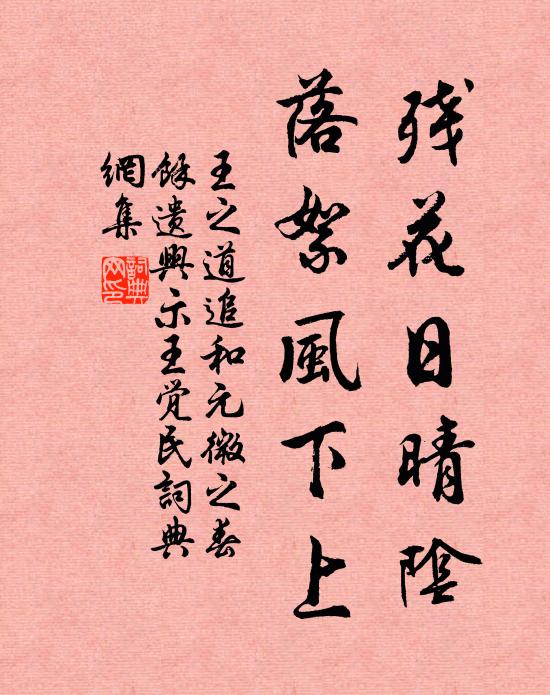 残花日晴陰
落絮風下上
王之道追和元微之春
餘遣興示王觉民詞典
網集
詞典網印